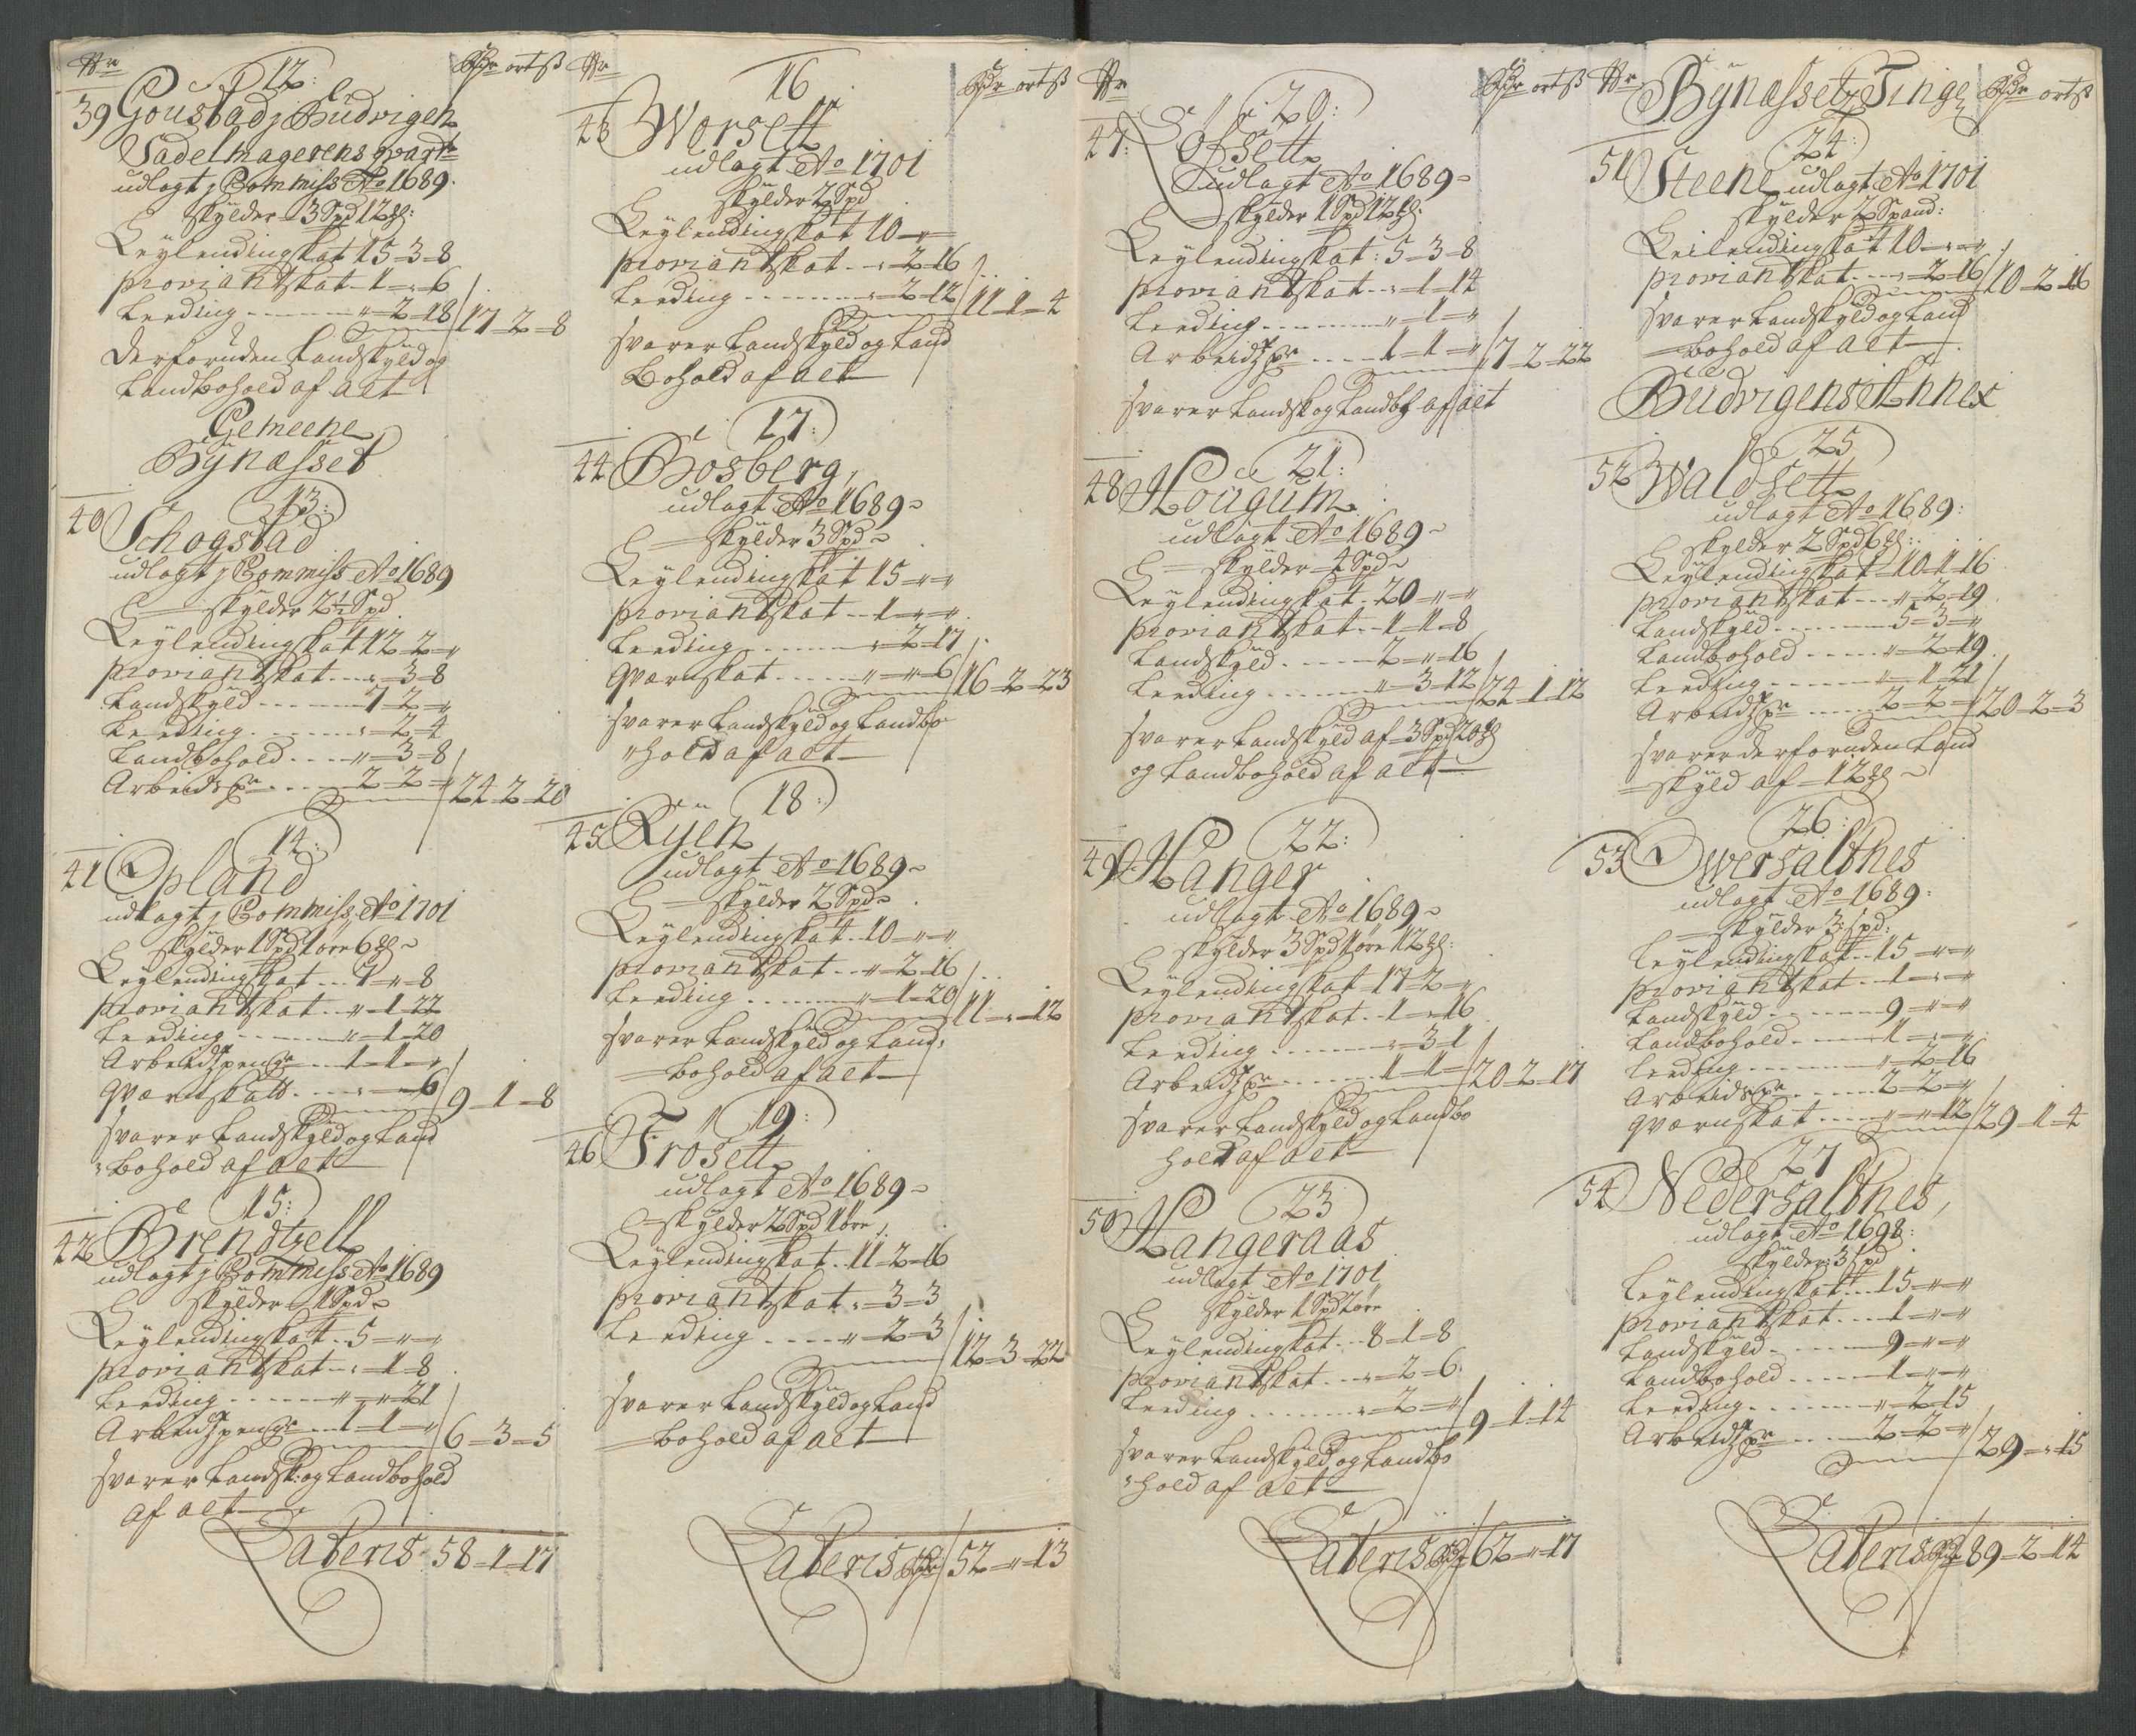 No
Rdr ort ß
12:
39 Goustad, Büdvigen
Sadelmagerens qvartr
udlagt j Commiss Ao 1689.
skylder 3 Spd 12 ℔:
Leylendingskat 15=3=8
proviantskat 1=„=6
Leeding „=2=18 / 17=2=8
derforuden Landskyld og
Landbohold af alt
Gemeene
Bynæsset
13:
40 Schogstad
udlagt j Commiss Ao 1689
skylder 2½ Spd
Leylendingskat 12=2=„
proviantskat „=3=8
Landskyld 7=2=„
Leeding „=2=4
Landbohold „=3=8
Arbeids pr 2=2=„ / 24=2=20
14:
41 Opland
udlagt j Commiss Ao 1701
skylder 1 Spd 1 øre 6 ℔
Leylendingskat 7=„=8
proviantskat „=1=22
Leeding „=1=20
Arbeidtzpenge 1=1=„
qværnskatt „=„=6 / 9=1=8
svarer Landskyld og Land
bohold af alt
15:
42 Brendtzell
udlagt j Commiss Ao 1689
skylder 1 Spd
Leylendingskat 5=„=„
proviantskat „=1=8
Leeding „=„=21
Arbeidtzpenge 1=1=„ / 6=3=5
svarer Landsk: og Landbohold
af alt
Lateris 58=1=17
No
Rdr ort ß
16
43 Worsett
udlagt Ao 1701
skylder 2 Spd
Leylendingskat 10=„=„
proviantskat „=2=16
Leeding „=2=12 / 11=1=4
svarer Landskyld og Land
Bohold af alt
17:
44 Bosberg,
udlagt Ao 1689
skylder 3 Spd
Leylendingskat 15=„=„
proviantskat 1=„=„
Leeding „=2=17
qværnskat „=„=6 / 16=2=23
svarer Landskyld og Landbo
hold af alt
18:
45 Ryen
udlagt Ao 1689
skylder 2 Spd
Leylendingskat 10=„=„
proviantskat „=2=16
Leeding „=1=20 / 11=„=12
svarer Landskyld og Land
bohold af alt
19:
46 Frosett
udlagt Ao 1689
skylder 2 Spd 1 øre
Leylendingskat 11=2=16
proviantskat „=3=3
Leeding „=2=3 / 12=3=22
svarer Landskyld og Land
bohold af alt
Lateris Rdr / 52=„=13
No
Rdr ort ß
20:
47: Lofsett
udlagt Ao 1689
skylder 1 Spd 12 ℔:
Leylendingskat: 5=3=8
proviantskat „=1=14
Leeding „=1=„
Arbeidtz pr 1=1=„ / 7=2=22
svarer Landsk og Landbh af alt
21:
48 Hougum
udlagt Ao 1689
skylder 4 Spd
Leylendingskat 20=„=„
proviantskat 1=1=8
Landskyld 2=„=16
Leeding „=3=12 / 24=1=12
svarer Landskyld af 3 Spd 20 ℔
og Landbohold af alt
22:
49 Hanger
udlagt Ao 1689
skylder 3 Spd 1 øre 12 ℔:
Leylendingskat 17=2=„
proviantskat 1=„=16
Leeding „=3=1
Arbeidtz pr 1=1=„ / 20=2=17
svarer Landskyld og Landbo
hold af alt
23
50 Hangeraas
udlagt Ao 1701
skylder 1 Spd 2 øre
Leylendingskat 8=1=8
proviantskat „=2=6
Leeding „=2=„ / 9=1=14
svarer Landskyld og Landbo
hold af alt
Lateris Rdr / 62=„=17
No
Bynæssetz Tinge
Rdr ort ß
24:
51 Steene, udlagt Ao 1701
skylder 2 Spand:
Leilendingskat 10=„=„
proviantskat „=2=16 / 10=2=16
svarer Landskyld og Land
bohold af alt
Büdvigens Annex
25
52 Waldsett
udlagt Ao 1689:
skylder 2 Spd 6 ℔:
Leylendingskat 10=1=16
proviantskat „=2=19
Landskyld 5=3=„
Landbohold „=2=19
Leeding „=1=21
Arbeidtz pr 2=2=„ / 20=2=3
svarer derforuden Land
skyld af 12 ℔
26:
53 Owersaltnes
udlagt Ao 1689:
skylder 3 spd:
Leylendingskat 15=„=„
proviantskat 1=„=„
Landskyld 9=„=„
Landbohold 1=„=„
Leeding „=2=16
Arbeids pr 2=2=„
qværnskat „=„=12 / 29=1=4
27
54 Nedersaltnes,
udlagt Ao 1698:
skylder: 3 spd
Leylendingskat 15=„=„
proviantskat 1=„=„
Landskyld 9=„=„
Landbohold 1=„=„
Leeding „=2=15
Arbeidtz pr 2=2=„ / 29=„=15
Lateris Rdr 89=2=14